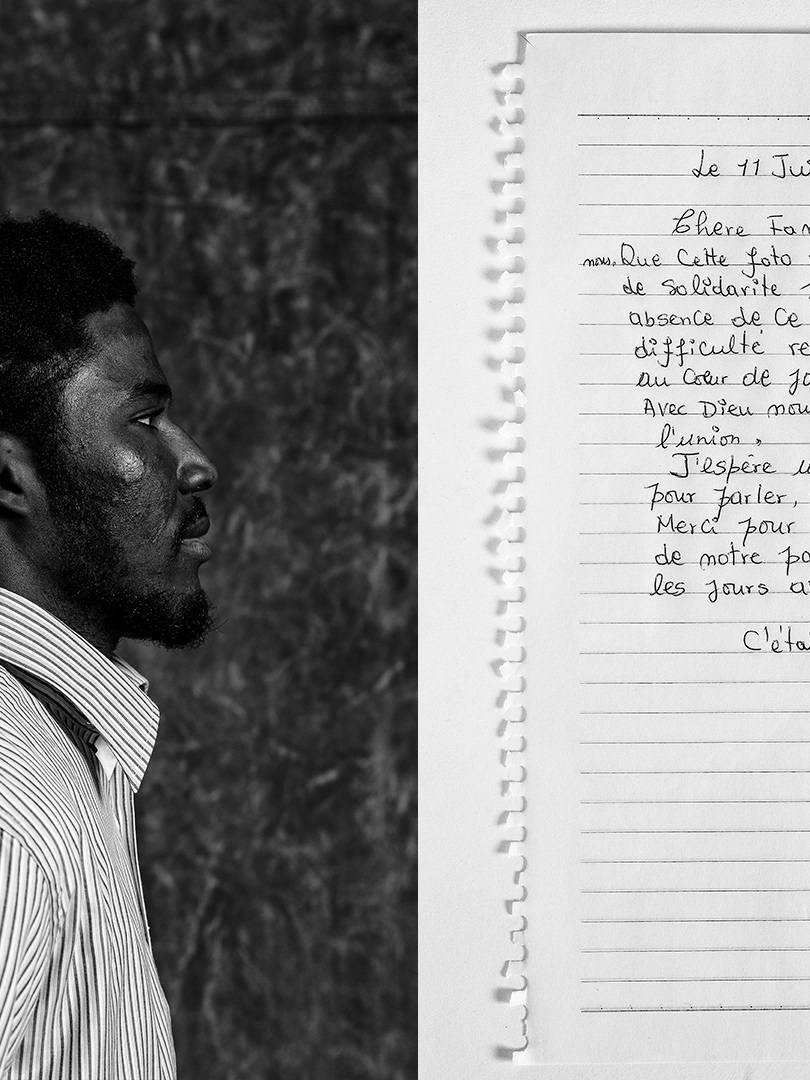 Le 11
Chere
nous. Que Cette foto
de Solidarite
absence de Ce
difficulté
au Cœur de
Avec Dieu
l'union,
J'espère
pour parler,
Merci pour
de notre
les jours